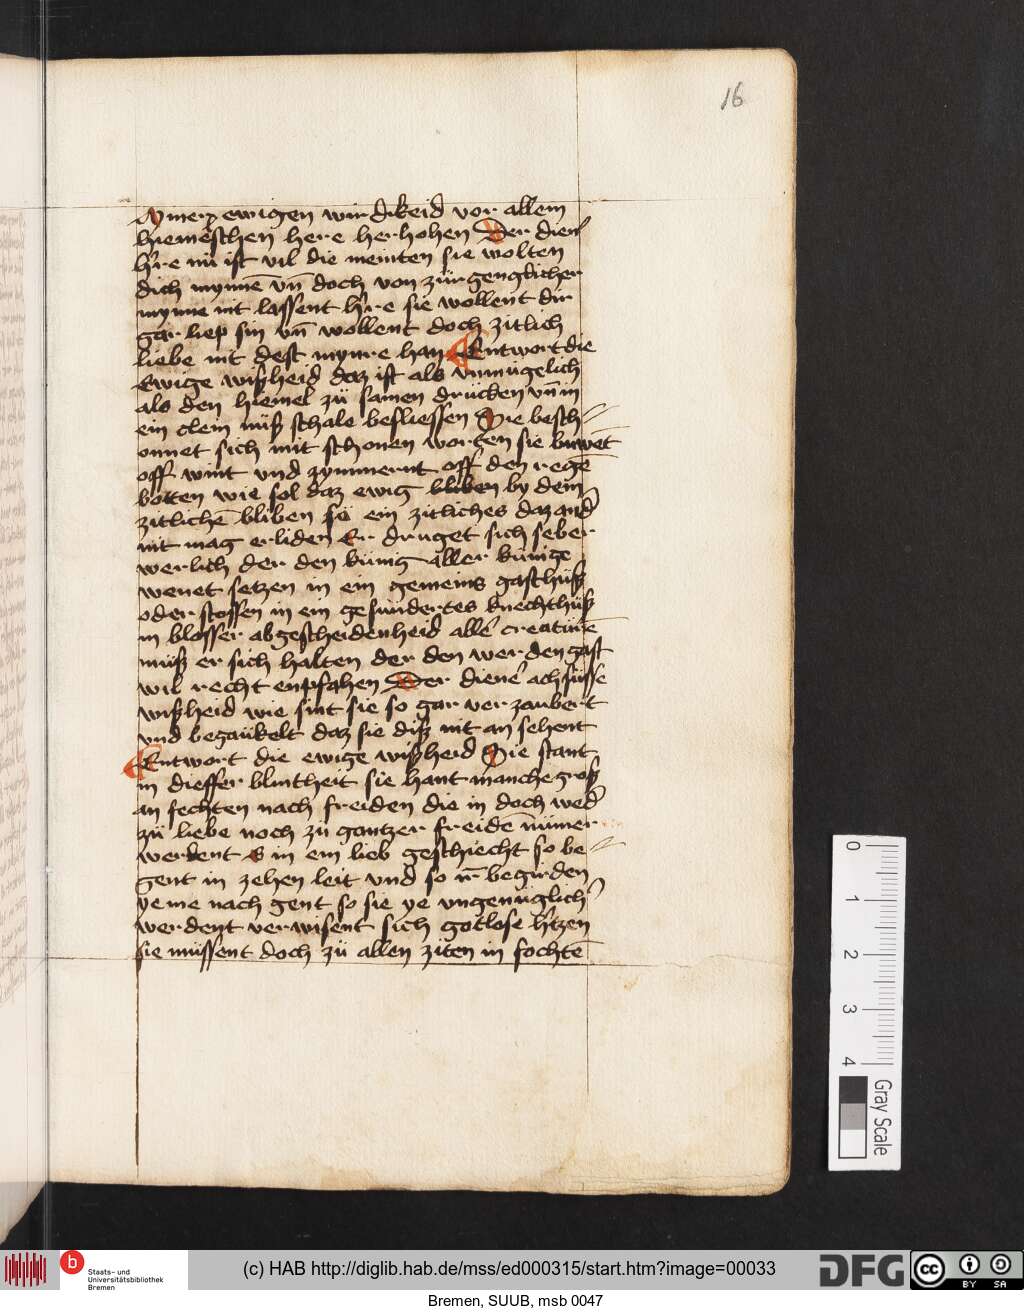 16
ymer ewigen wirdikeid vor allem
hiemelschen here herhohen Der diener
hr̄e nū ist vil die meinten sie wolten
dich mynnē vn̄ doch von zürgenglicher
mynne nit lassent hr̄e sie wollent dir
gar liep sin vn̄ wollent doch zitlich
liebe nit dest mynre han Entwort die
Ewige wißheid daz ist als vnmügelich
als den hiemel zü samen drücken vn̄ in
ein clein nüß schale besliessen Sie besch
onnet sich mit schonen worten sie buwēt
off wint vnd zymmernt off den regē
botten wie sol daz ewig bliben by dem
zitlichē bliben so ein zitliches daz and̄
nit mag erliden Er druget sich selber
werlich der den kunig aller künige
wenet setzen in ein gemeins gasthüß
oder stossen in ein gesündertes knechthüß
in blosser abgescheidenheid allē creatürē
müß er sich halten der den werden gast
wil recht enpfahen Der dienē ach süsse
wißheid wie sint sie so gar verzaubert
vnd begaükelt daz sie diß nit an sehent
Entwort die ewige wißheid Sie stant
in dieffer blintheit sie hant manche groß
an fechten nach freiden die in doch wed̄
zü liebe noch zü gantzer freidē nümer
werdent Es in ein lieb geschiecht so be
gent in zehen leit vnd so ir̄ begirden
ye me nach gent so sie ye vngenüglich̄
werdent verwisent sich gotlose hr̄tzen
sie müssent doch zü allen ziten in fochtē
0
1
2
3
4
Gray Scale
b
Staats- und
Universitätsbibliothek
Bremen
(c) HAB http://diglib.hab.de/mss/ed000315/start.htm?image=00033
DFG
cc
BY SA
Bremen, SUUB, msb 0047